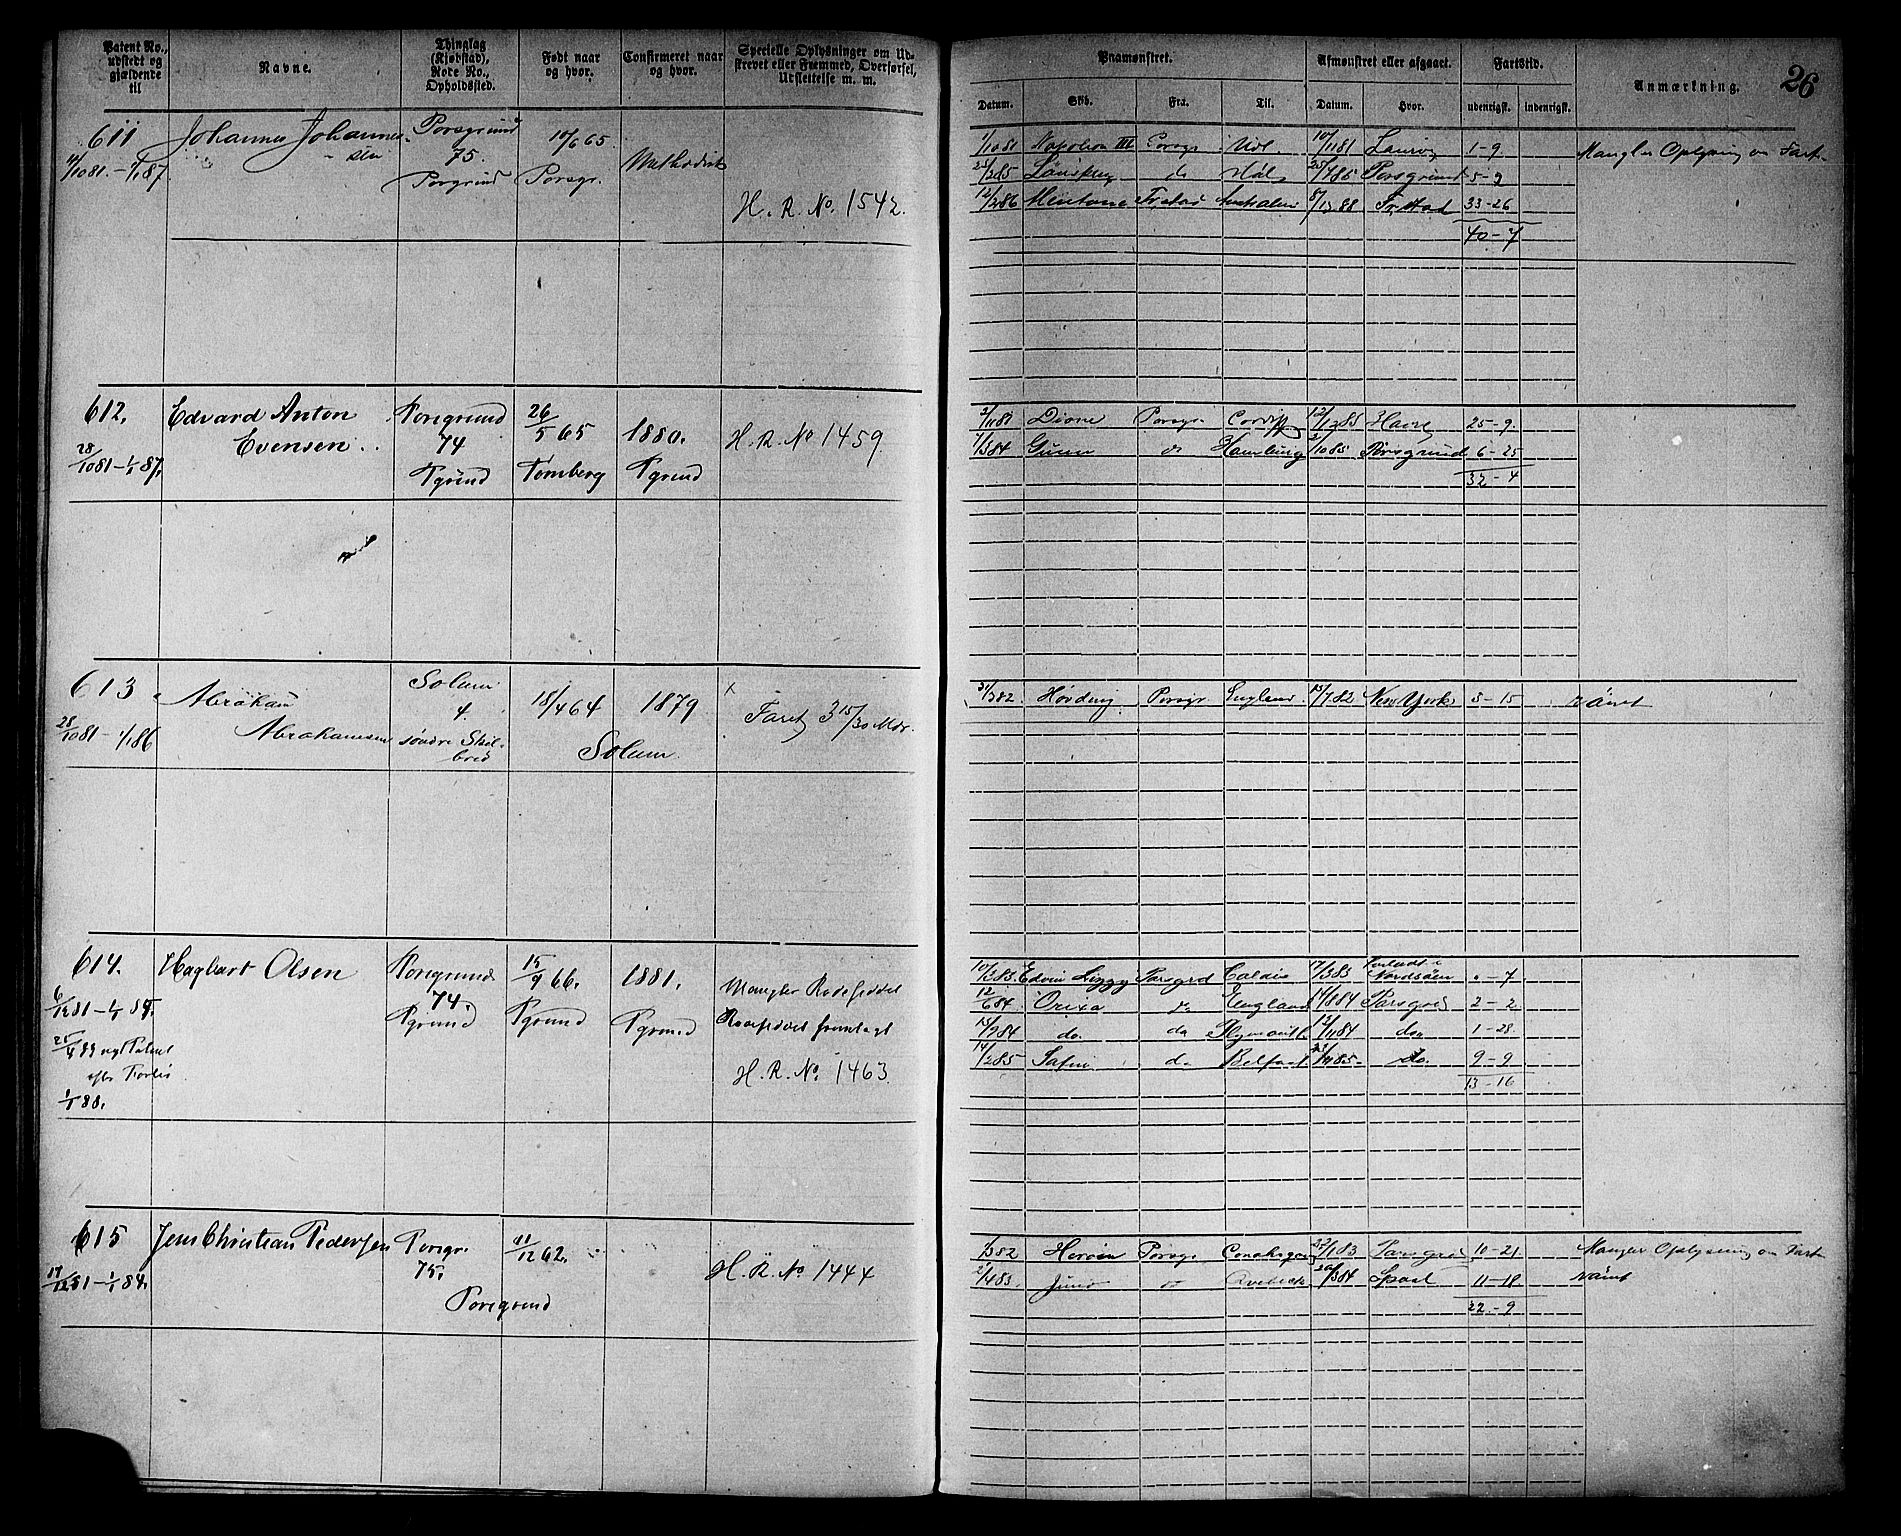 Patent No., udstedt og gjældende til
Navne.
Thinglag (Kjøbstad), Rode No., Opholdssted.
Født naar og hvor.
Confirmeret naar og hvor.
Specielle Oplysninger om Udskrevet eller Fremmed, Overførsel, Udslettelse m. m.
611
11/10 81. - 1/1 87.
Johannes Johannes-
sen
Porsgrund
75.
Porgrund
10/6 65
Porsgr.
Methodist
H. R. No. 1542.
612.
28/10 81 - 1/1 87.
Edvard Anton
Evensen
Porsgrund
74
Pgrund
26/5 65
Tomberg
1880.
Pgrund
H. R. No 1459.
613
28/10 81 - 1/1 86
Abraham
Abrahamsen
Solum
4.
søndre Skil-
bred
18/4 64
1879
Solum.
x
Faret 3 15/30 Mdr.
614.
6/12 81 - 1/1 87.
25/4 83 nyt Patent
efter Forlis
1/1 88.
Hagbart Olsen
Porsgrund
74.
Pgrund
15/9 66.
Pgrund
1881.
Pgrund
Mangler Rodeseddel
Rodeseddel fremlagt
H. R. No. 1463.
615
17/12 81 - 1/1 84.
Jens Christian Pedersen
Porsgr.
75.
Porsgrund
11/12 62.
H. R. No 1444
26
Paamønstret.
Afmønstret eller afgaaet.
Fartstid.
Anmærkning.
Datum. Skib. Fra. Til. Datum. Hvor. udenrigsk. indenrigsk.
1/10 81 Napoleon III Porsgr Udl. 10/11 81 Laurvig 1-9 Mangler Oplysning om Fart
25/2 85 do 25/7 85 Porsgrund 5-2
12/2 86 Mentone Frstad Australien 88 Fr.stad 33-26
40-7
2/11 81 Dione Porsgr Cardiff 85 Havre 25-9.
84 do Hamburg 2/10 85 Porsgrund 6-25
32-4
31/3 82 Høvding Porsgr England 15/7 82 New York 3-15 rømt
10/3 83 Edvin Lizzy Porsgrd Calais 17/3 83 Forladt i Nordsøen 0-7
12/6 84 Orixa do England 14/8 84 Porsgrd 2-2
84 do. do Plymouth 12/11 84 do 1-28
14/2 85 do Belfast 23/11 85 do. 9-9
13-16
1/3 82 Heroen Porsgr 22/1 83 Porsgrd 10-21 Mangler Oplysning om Fart
2/4 83 Juno do 20/3 84 11-18 rømt
22-9